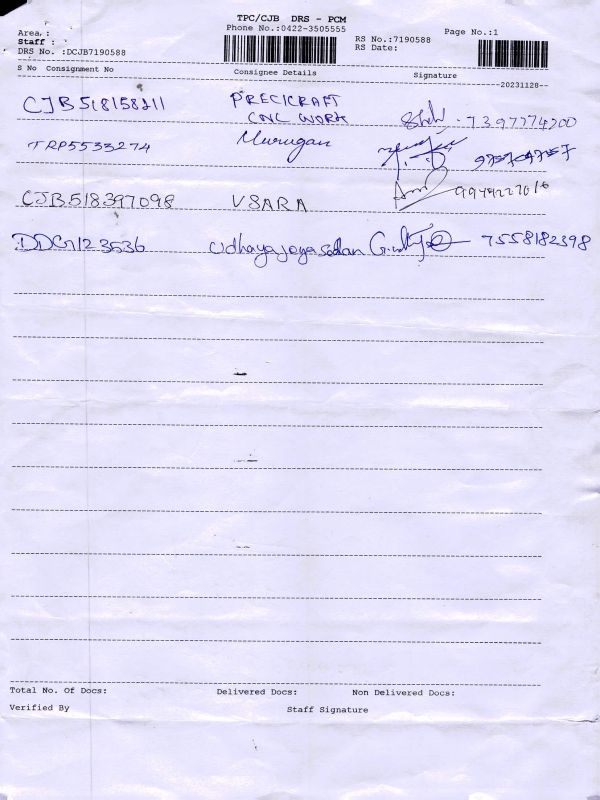 TPC/CJB DRS - PCM
Phone No.:0422-3505555
Page No.:1
Area :
Staff :
DRS No. :DCJB7190588
RS No.:7190588
RS Date:
20231128
S No Consignment No Consignee Details Signature
CJB518158211 PRECICRAFT
CNC WORK 7397774200
TRP5533274 Murugan
CJB518397098 VSARA
DDG1123536 7558182398
Total No. Of Docs: Delivered Docs: Non Delivered Docs:
Verified By Staff Signature